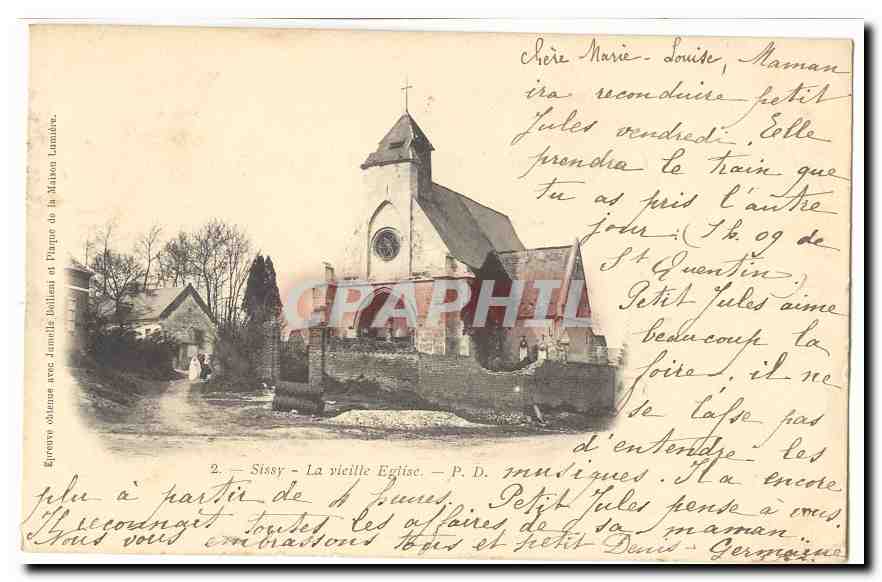 chère Marie-Louise, Maman
ira reconduire petit
Jules vendredi. Eelle
prendra le train que
tu as pris l'autre
jour. (5h. 09 de
St Quentin).
Petit Jules aime
beaucoup la
foire. il ne
se lasse pas
d'entendre les
musiques. Il a encore
plu à partir de 4 heures. Petit Jules pense à vous.
Il reconnait toutes les affaires de sa maman.
Nous vous embrassons tous et petit Denis - Germaine
2. — Sissy - La vieille Eglise. — P. D.
Epreuve obtenue avec Jumelle Bellieni et Plaque de la Maison Lumière.
CPAPHIL